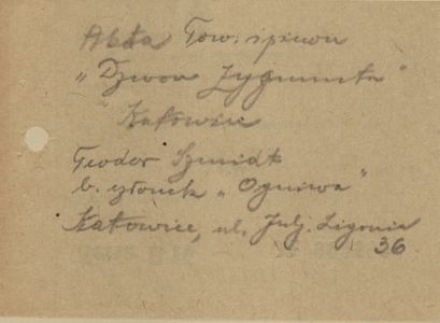 Akta Tow. śpiewu
"Dzwon Zygmunta"
Katowice
Teodor Szmidt
b. członek "Ogniwa"
Katowice, ul. Julj. Ligonia
36